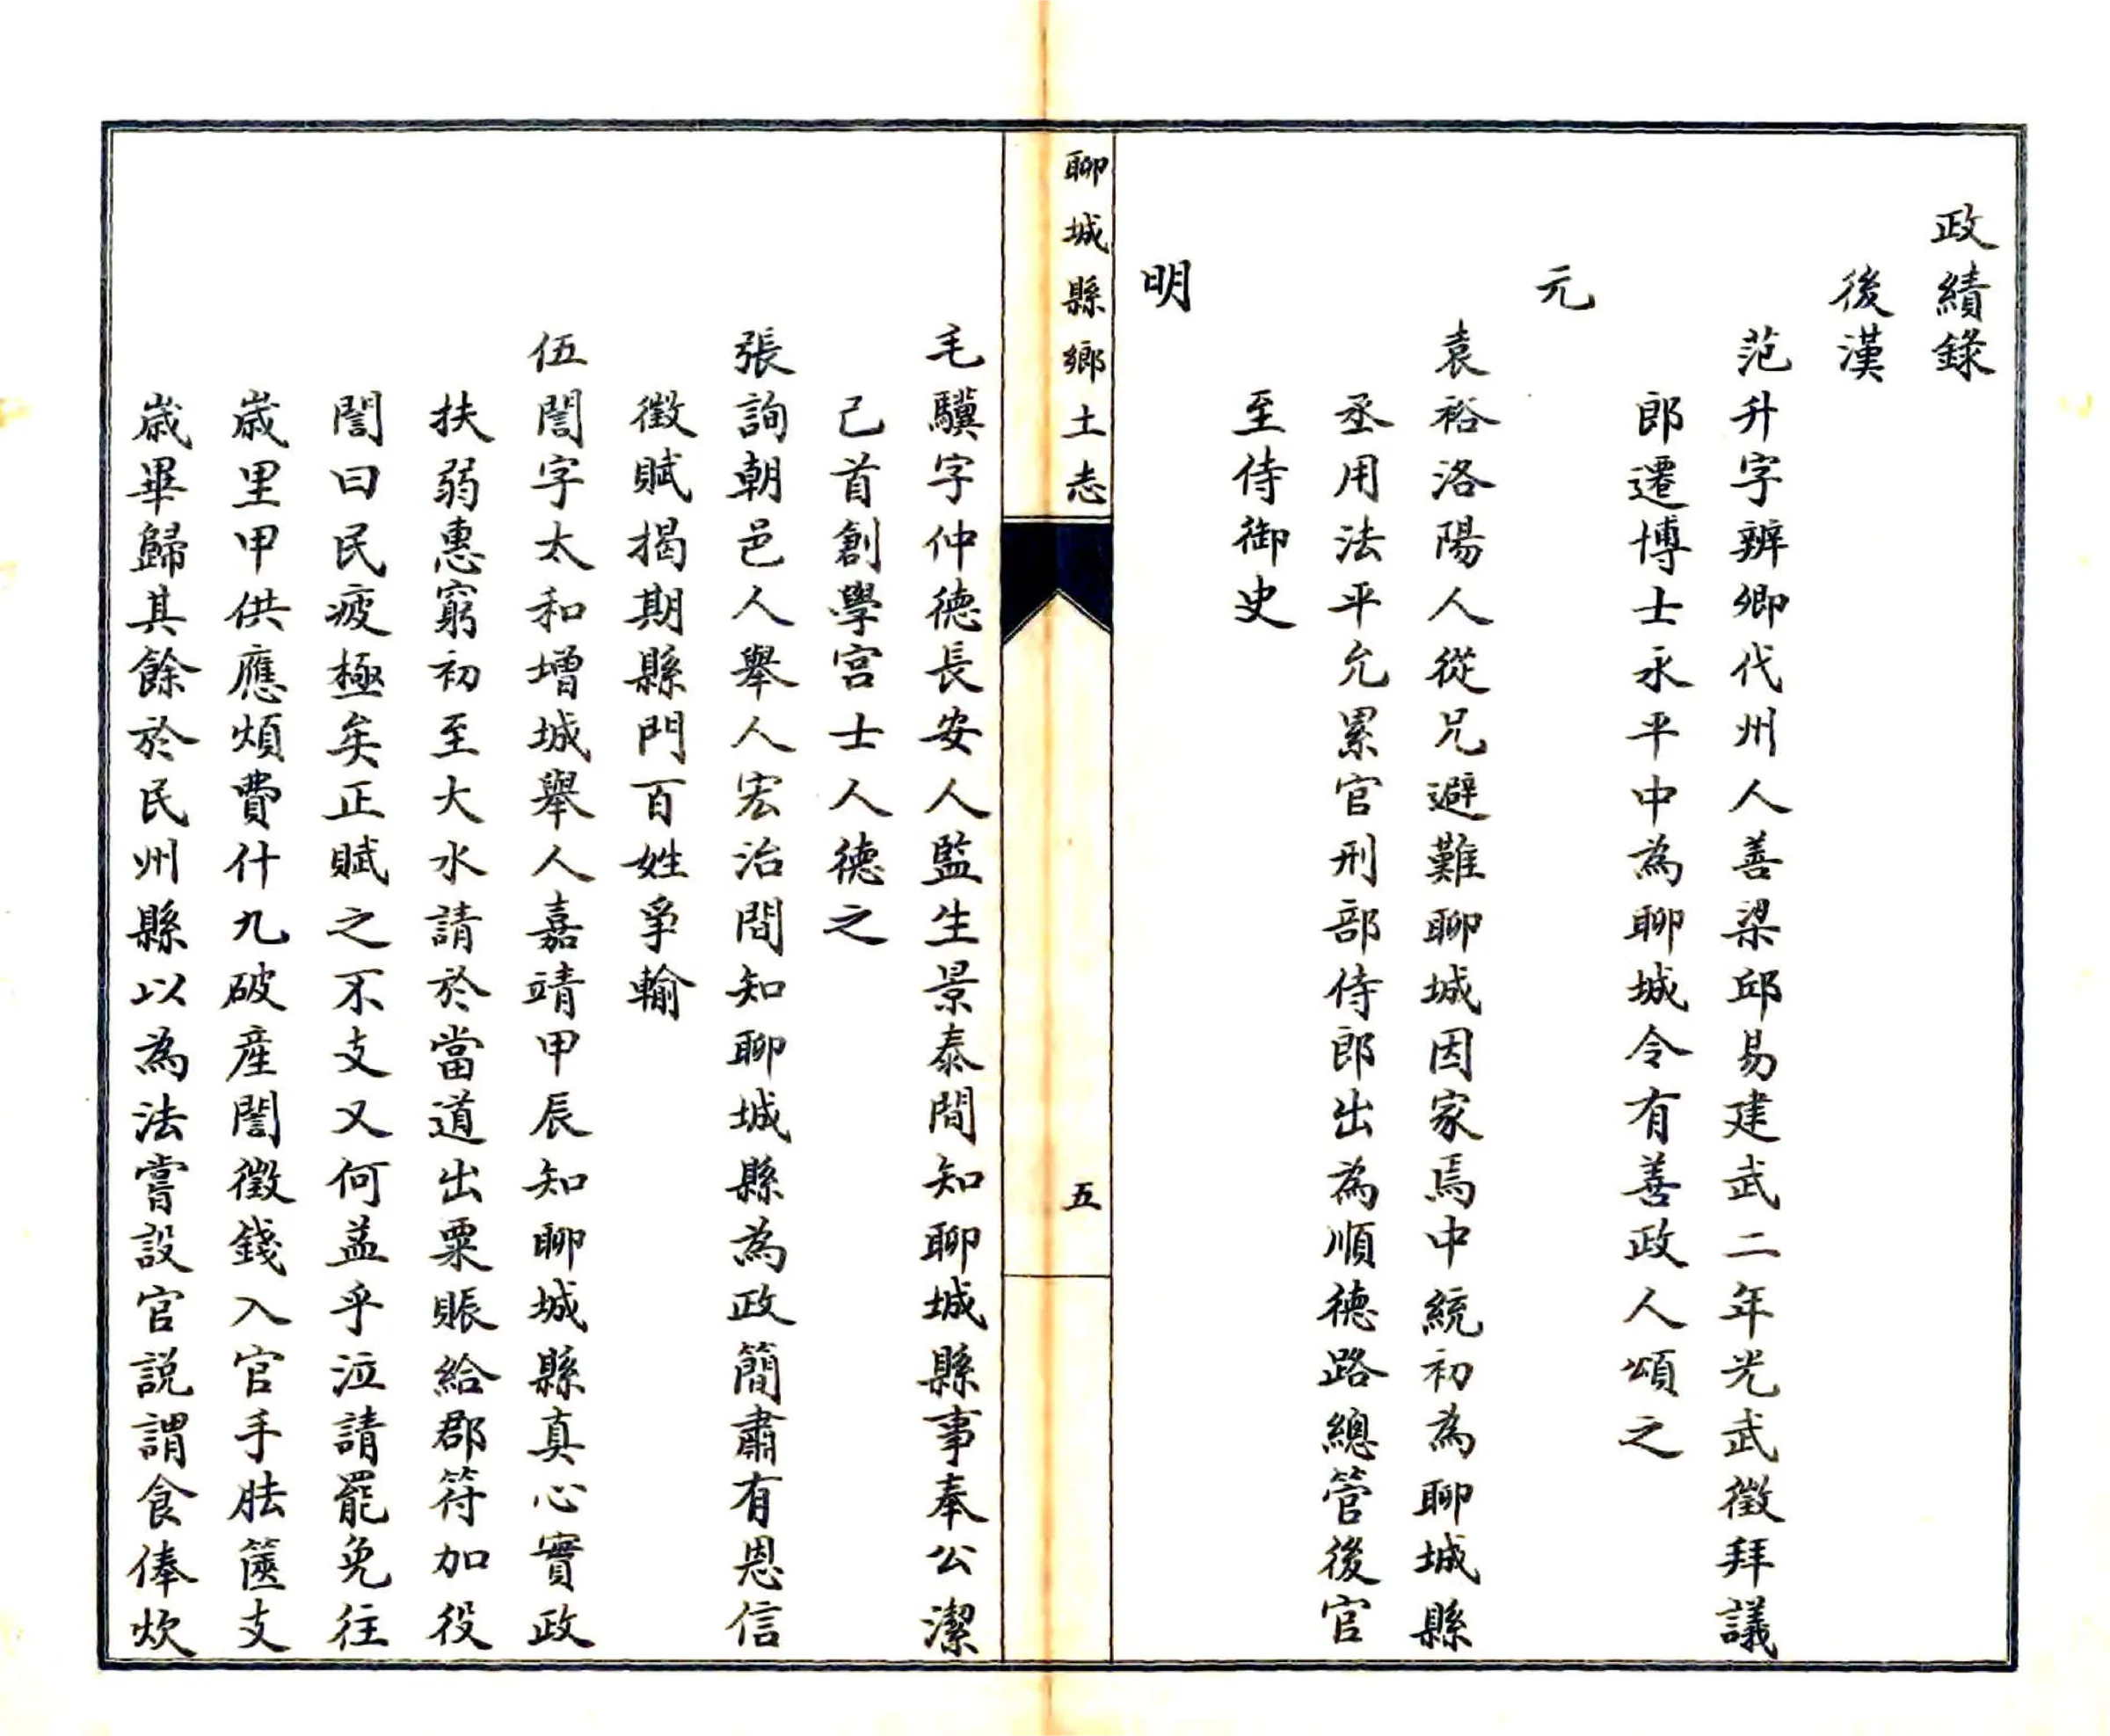 政績錄
後漢
范升字辨卿代州人善梁邱易建武二年光武徵拜議
郎遷博士永平中為聊城令有善政人頌之
元
袁裕洛陽人從兄避難聊城因家焉中統初為聊城縣
丞用法平允累官刑部侍郎出為順德路總管後官
至侍御史
明
聊城縣鄉土志
五
毛驥字仲德長安人監生景泰間知聊城縣事奉公潔
己首創學宮士人德之
張詢朝邑人舉人宏治間知聊城縣為政簡肅有恩信
徵賦揭期縣門百姓爭輸
伍誾字太和增城舉人嘉靖甲辰知聊城縣真心實政
扶弱惠窮初至大水請於當道出粟賑給郡符加役
誾曰民疲極矣正賦之不支又何益乎泣請罷免往
歲里甲供應煩費什九破產誾徵錢入官手胠篋支
歲畢歸其餘於民州縣以為法嘗設官說謂食俸炊